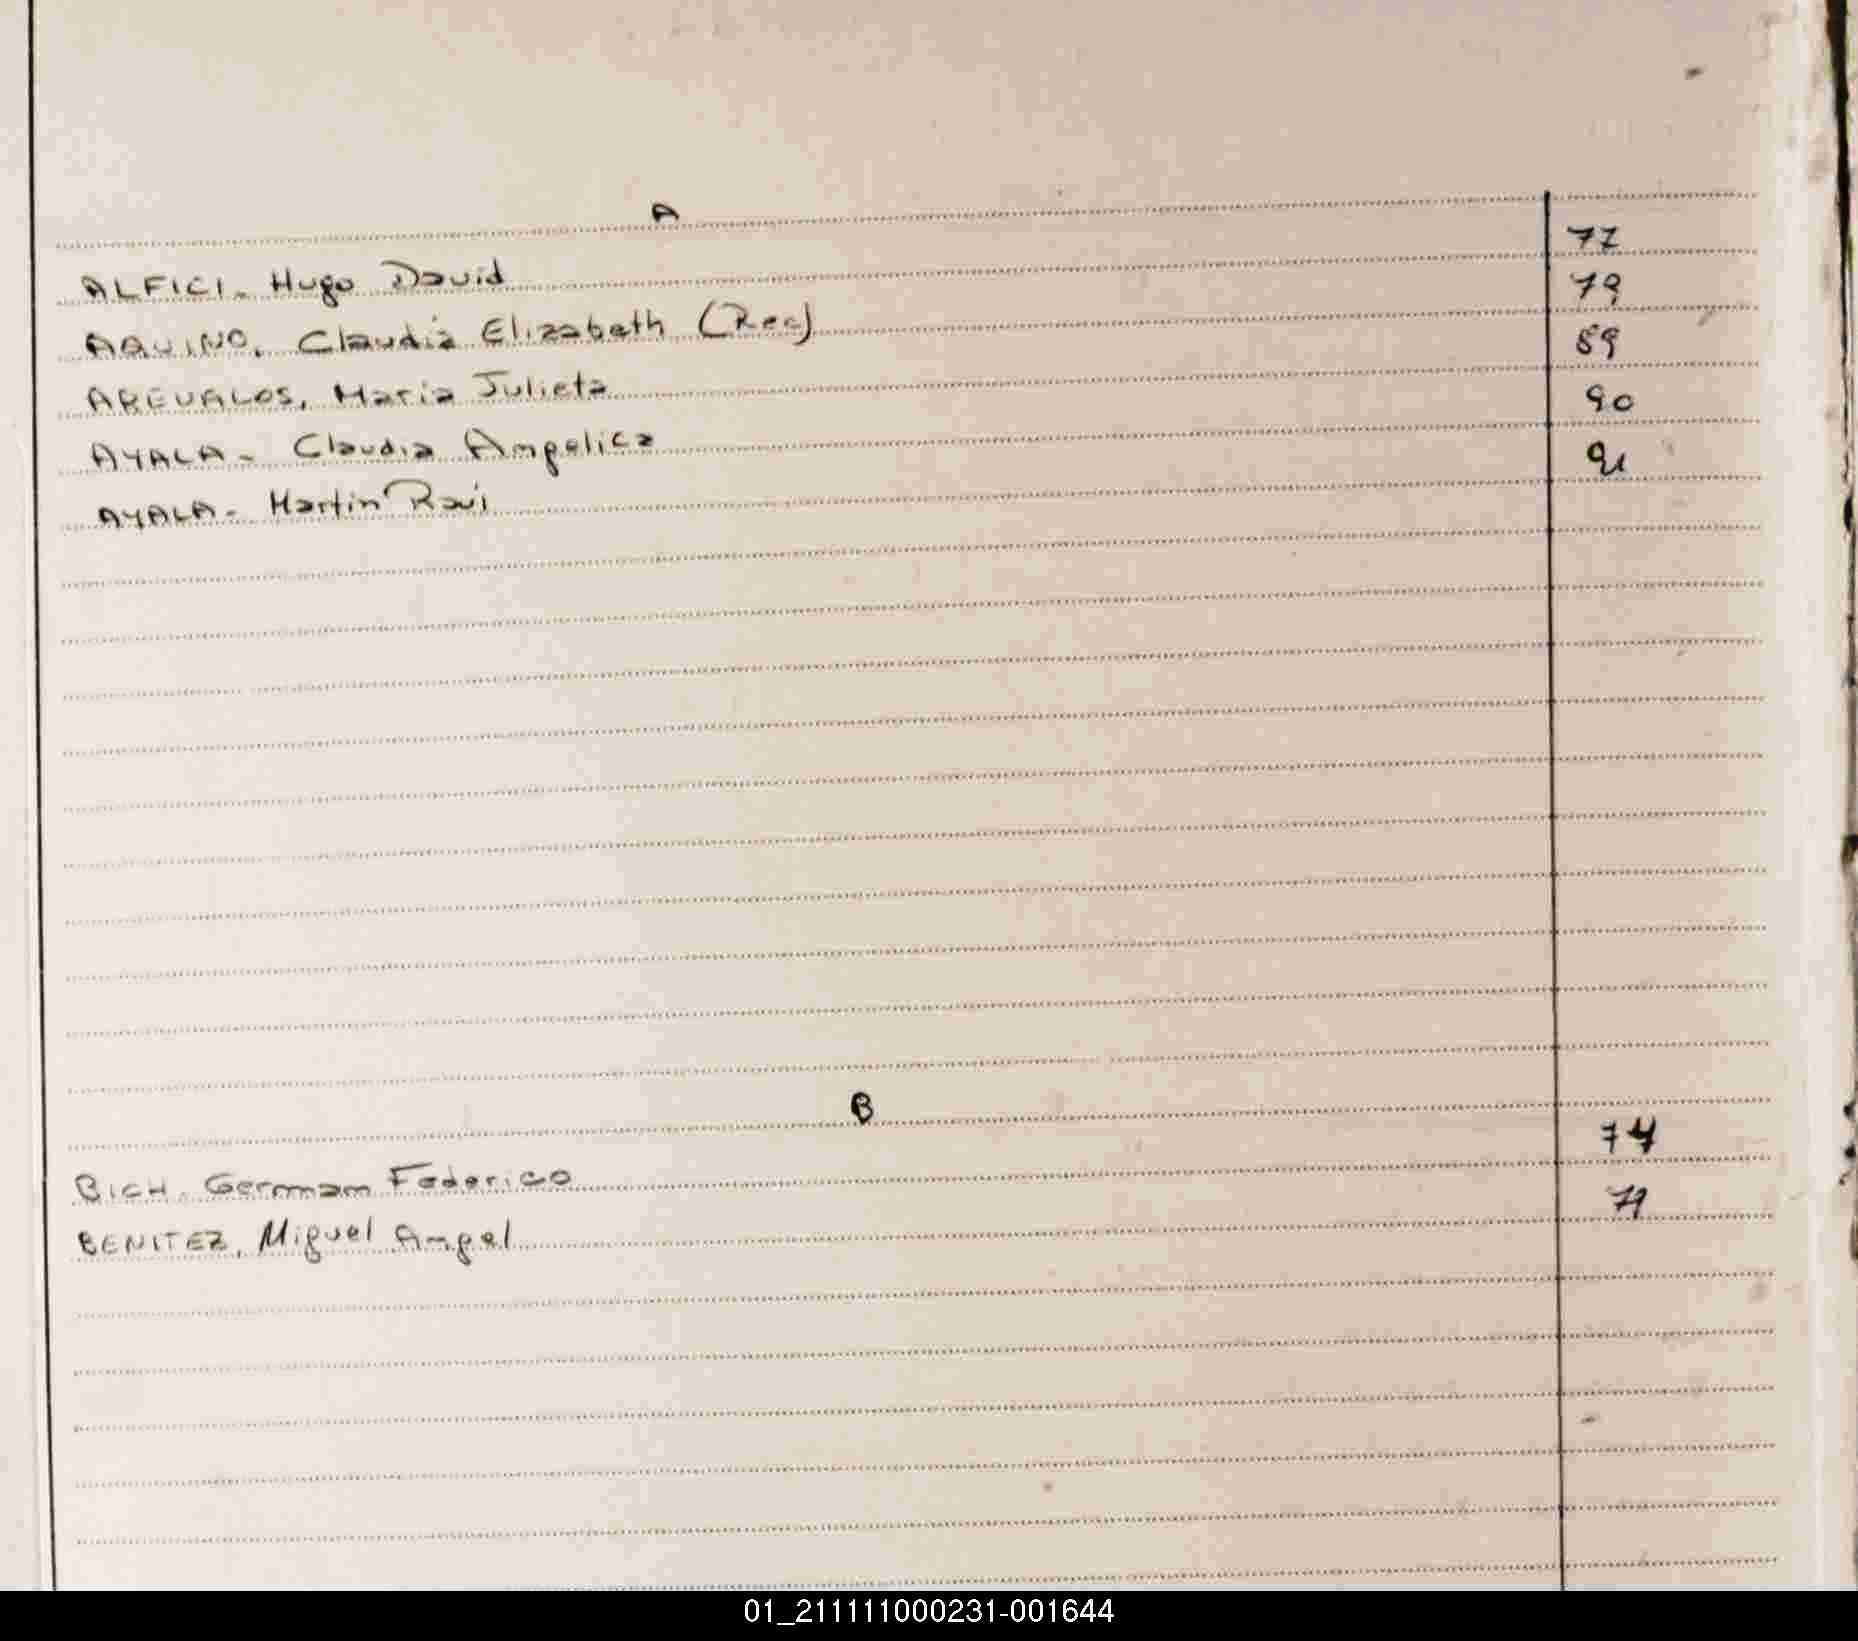 A
ALFICI. Hugo David 77
AQUINO, Claudia Elizabeth (Rec) 79
AREVALOS, Maria Julieta 89
AYALA - Claudia Angelica 90
AYALA - Martin Raul 91
B
BICH. German Federico 74
BENITEZ, Miguel Angel
01_211111000231-001644